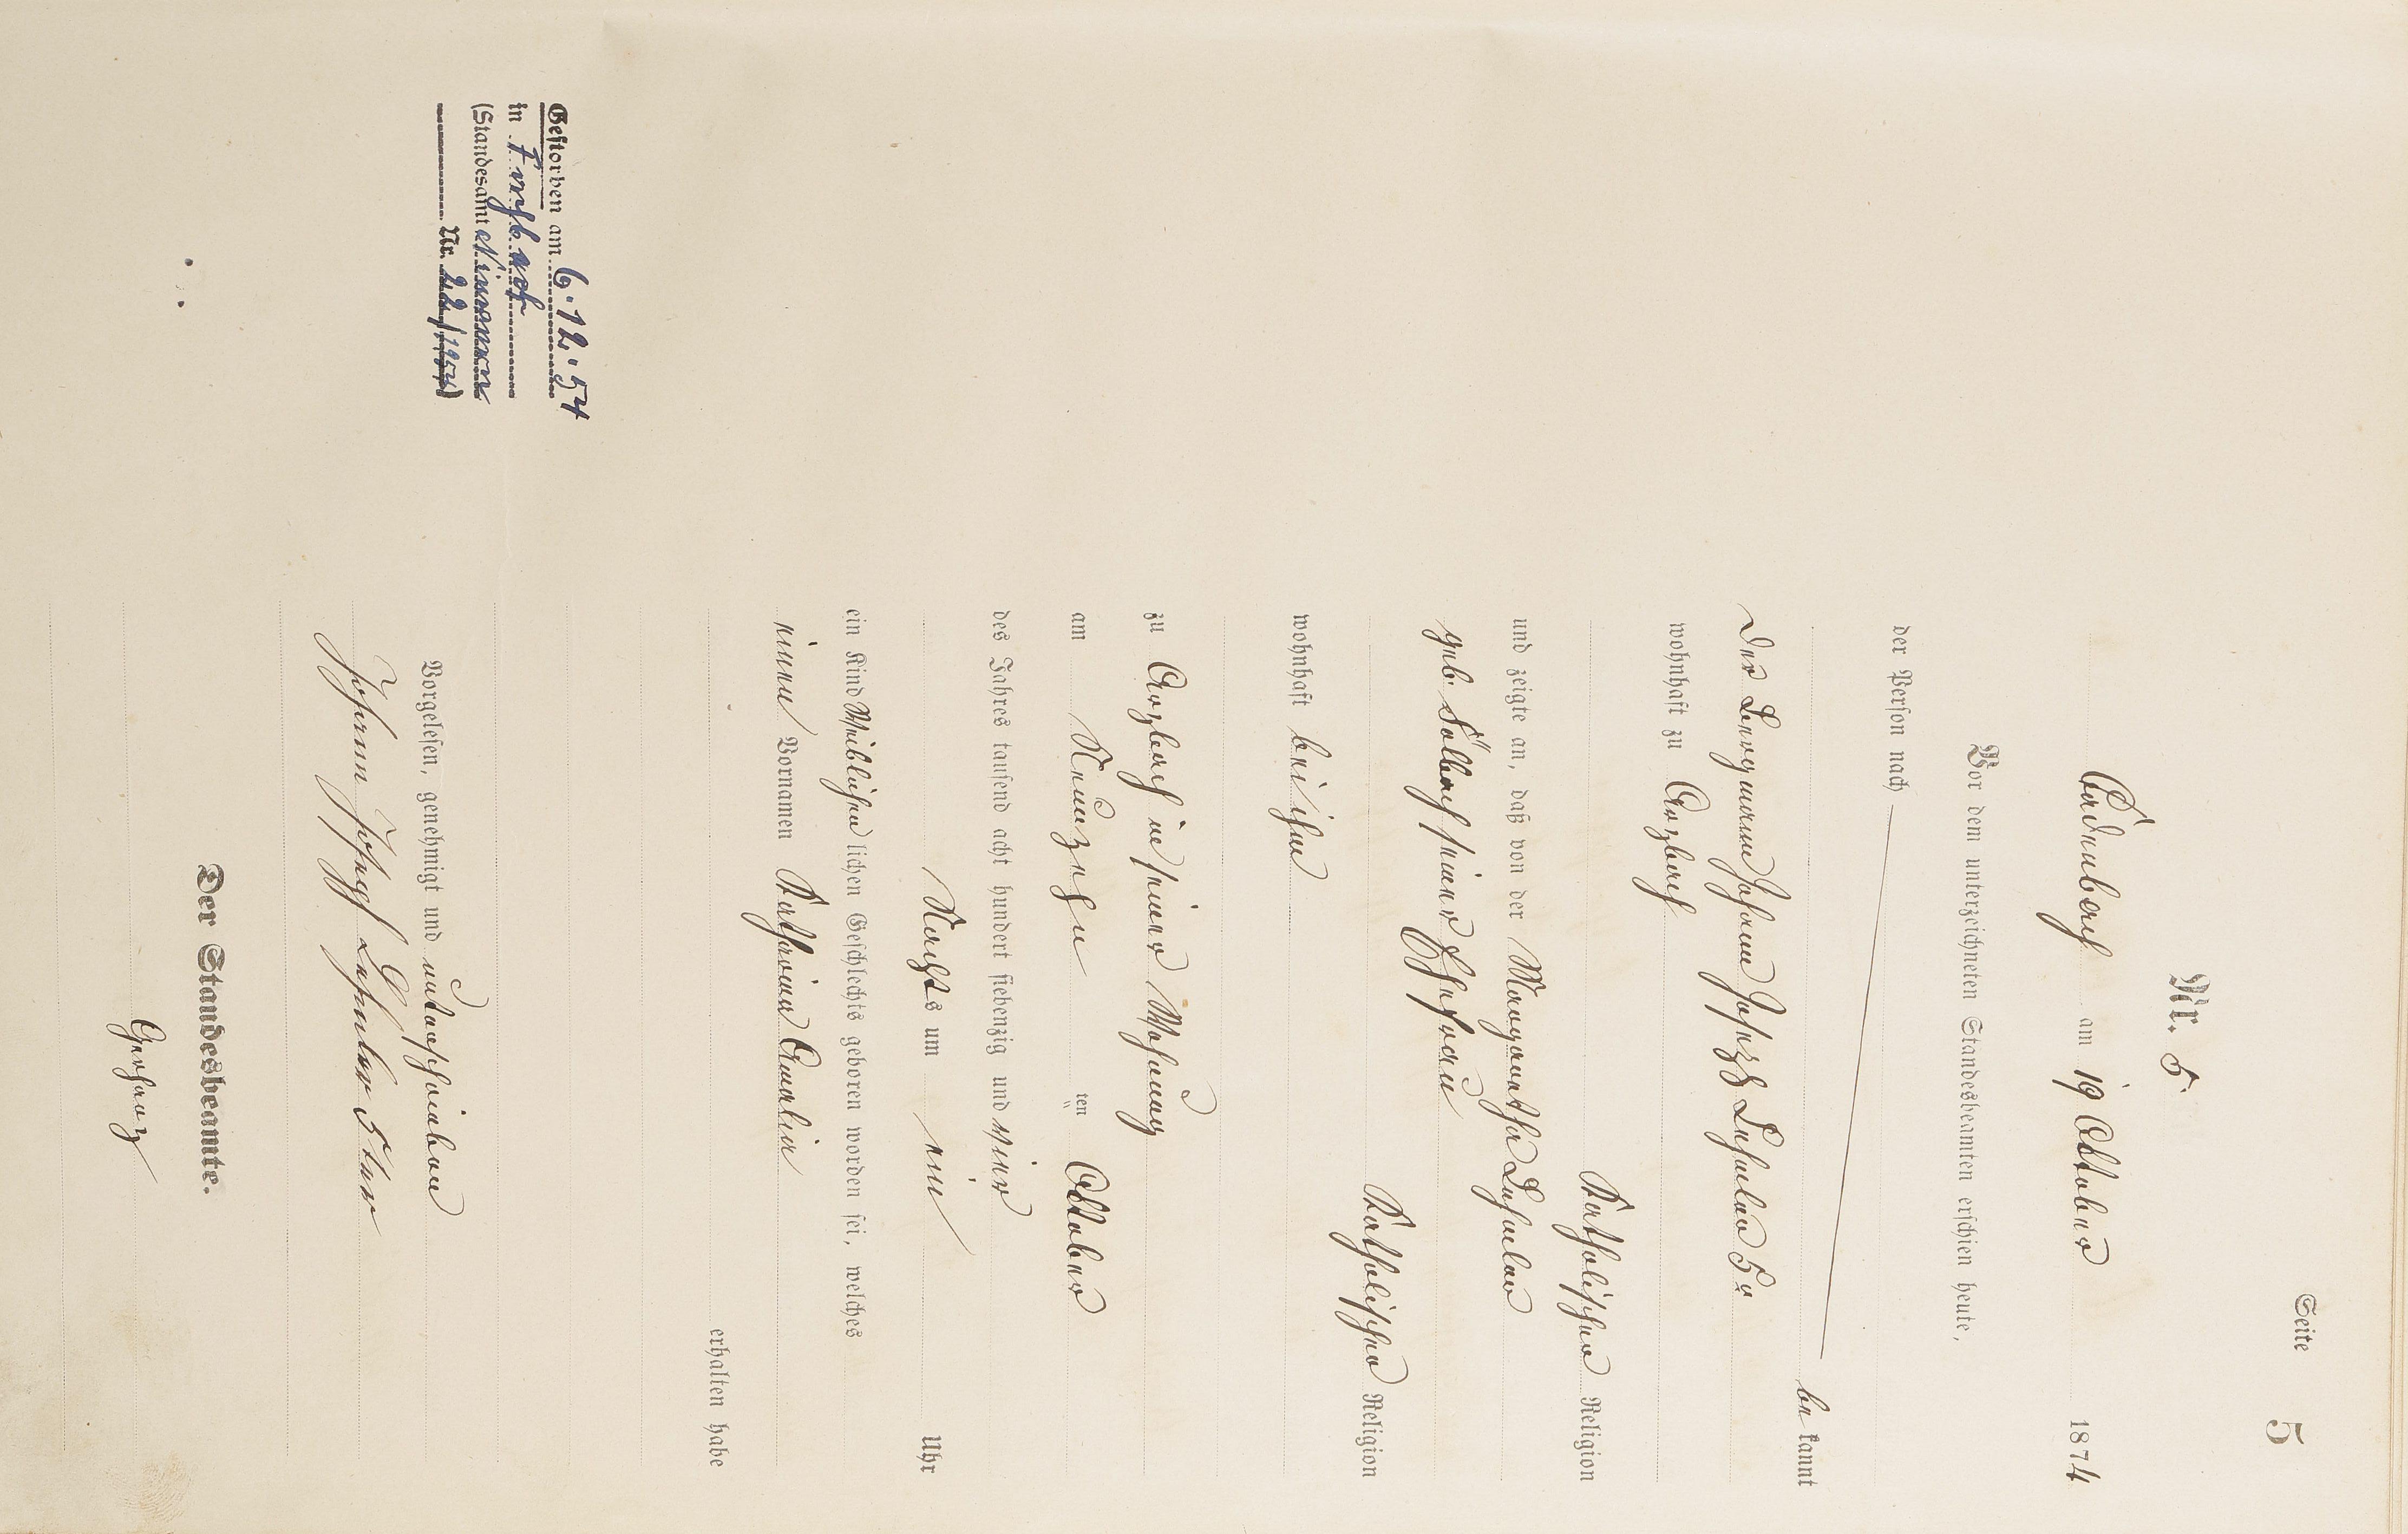 Seite 5
Nr. 5.
Cadenbach am 19 Oktober 1874
Vor dem unterzeichneten Standesbeamten erschien heute,
der Person nach
be kannt
der Bergmann Johann Joseph Lehmler 5r
wohnhaft zu Arzbach
Katholischer Religion
und zeigte an, daß von der Margaretha Lehmler
geb. Sölbach seiner Ehefrau
Katholischer Religion
wohnhaft bei ihm
zu Arzbach in seiner Wohnung
am Neunzehn ten Oktober
des Jahres tausend acht hundert siebenzig und vier
Nachts um ein Uhr
ein Kind Weiblichen lichen Geschlechts geboren worden sei, welches
einen Vornamen Kathrina Amalia
erhalten habe
Vorgelesen, genehmigt und unterschrieben
Johann Joseph Lehmler 5ter
Der Standesbeamte.
Gerharz
Gestorben am 6.12.54
in
(Standesamt
Nr. 22/1954)